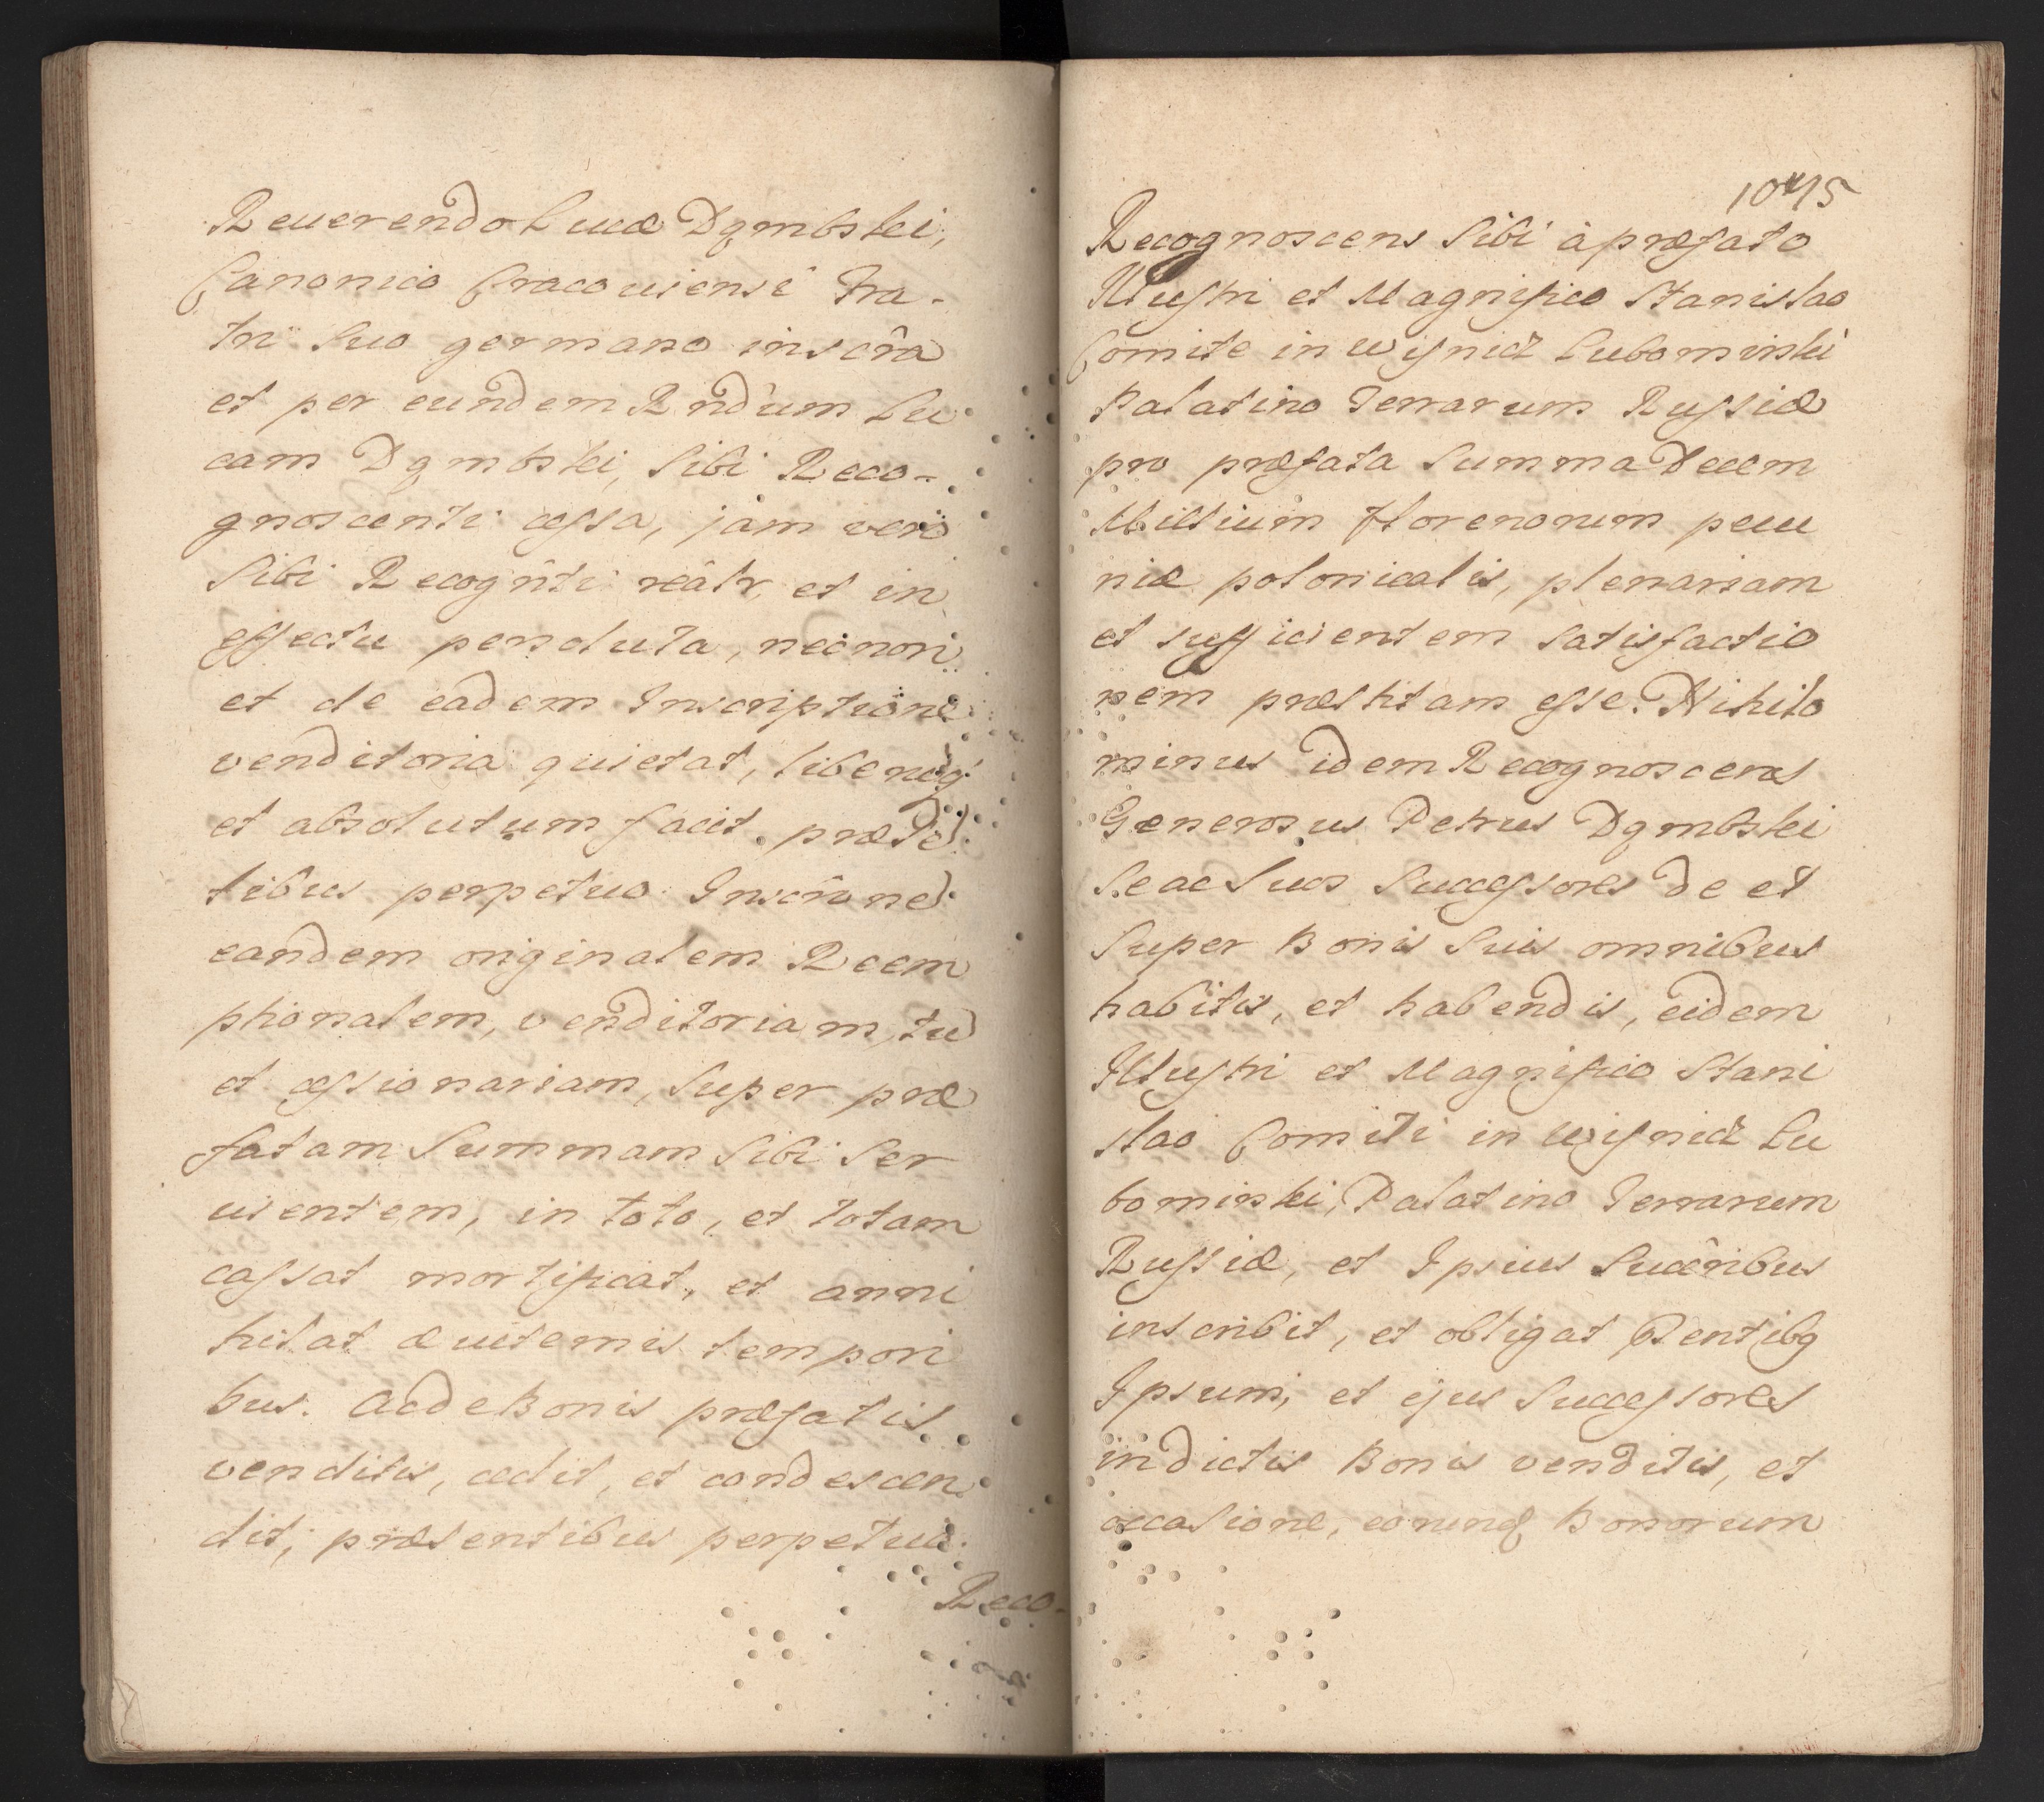 Reuerendo Lucæ Dąmbski,
Canonico Cracouiensi Fra-
tri Suo germano inscrâ
et per eundem Rndum Lu
cam Dąmbski, Sibi Reco-
gnoscenti cessa, jam verò
Sibi Recognti reâlr, et in
effectu persoluta, nec non
et de eadem Inscriptione
venditoria quietat, liberuq́
et absolutum facit. præsẽ
tibus perpetuo. Inscrône)
eandem originalem Reem
ptionalem, venditoriam, tũ
et cessionariam, Super præ
fatam Summam Sibi Ser
uientem, in toto, et totam
cassat mortificat, et anni
hilat æuiternis tempori
bus. Ac de Bonis præfatis
venditis, cedit, et condescen
dit, præsentibus perpetuò.
Reco-
1075
Recognoscens Sibi à præfato
Illustri et Magnifico Stanislao
Comite in Wisnicz Lubomirski
Palatino Terrarum Russiæ
pro præfata Summa Decem
Millium florenorum pecu
niæ polonicalis, plenariam
et sufficientem Satisfactio
nem præstitam esse. Nihilo
minus idem Recognoscens
Generosus Petrus Dąmbski
Se ac Suos Successores de et
Super Bonis Suis omnibus
habitis, et habendis, eidem
Illustri et Magnifico Stani
slao Comiti in Wisnicz Lu
bomirski, Palatino Terrarum
Russiæ, et Ipsius Succribus
inscribit, et obligat Pentibg
Ipsum, et ejus Successores
in dictis Bonis venditis, et
occasione, eorunq Bonorum